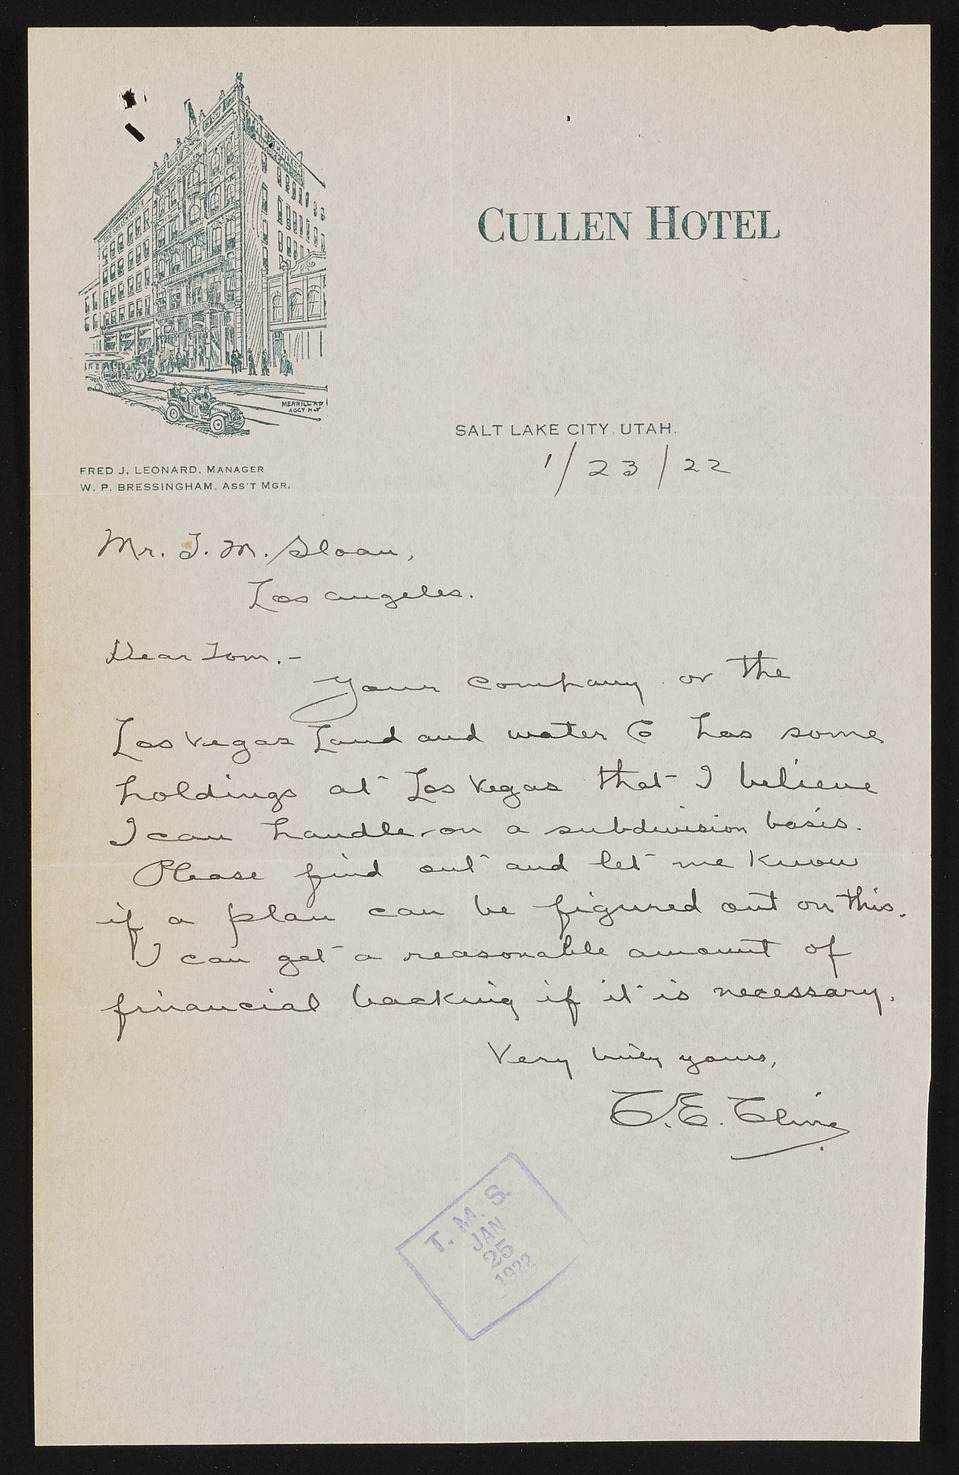 CULLEN HOTEL
MERRILL AD
AGCY N.Y
SALT LAKE CITY, UTAH.
1/23/22
FRED J. LEONARD, MANAGER
W. P. BRESSINGHAM, ASS'T MGR.
Mr. T. M. Sloan,
Los Angeles.
Dear Tom.-
Your company or the
Las Vegas Land and water Co has some
holdings at Las Vegas that I believe
I can handle on a subdivision basis.
Please find out and let me know
if a plan can be figured out on this.
I can get a reasonable amount of
financial backing if it is necessary.
Very truly yours,
C.E. Cline
T. M. S.
JAN
25
1922